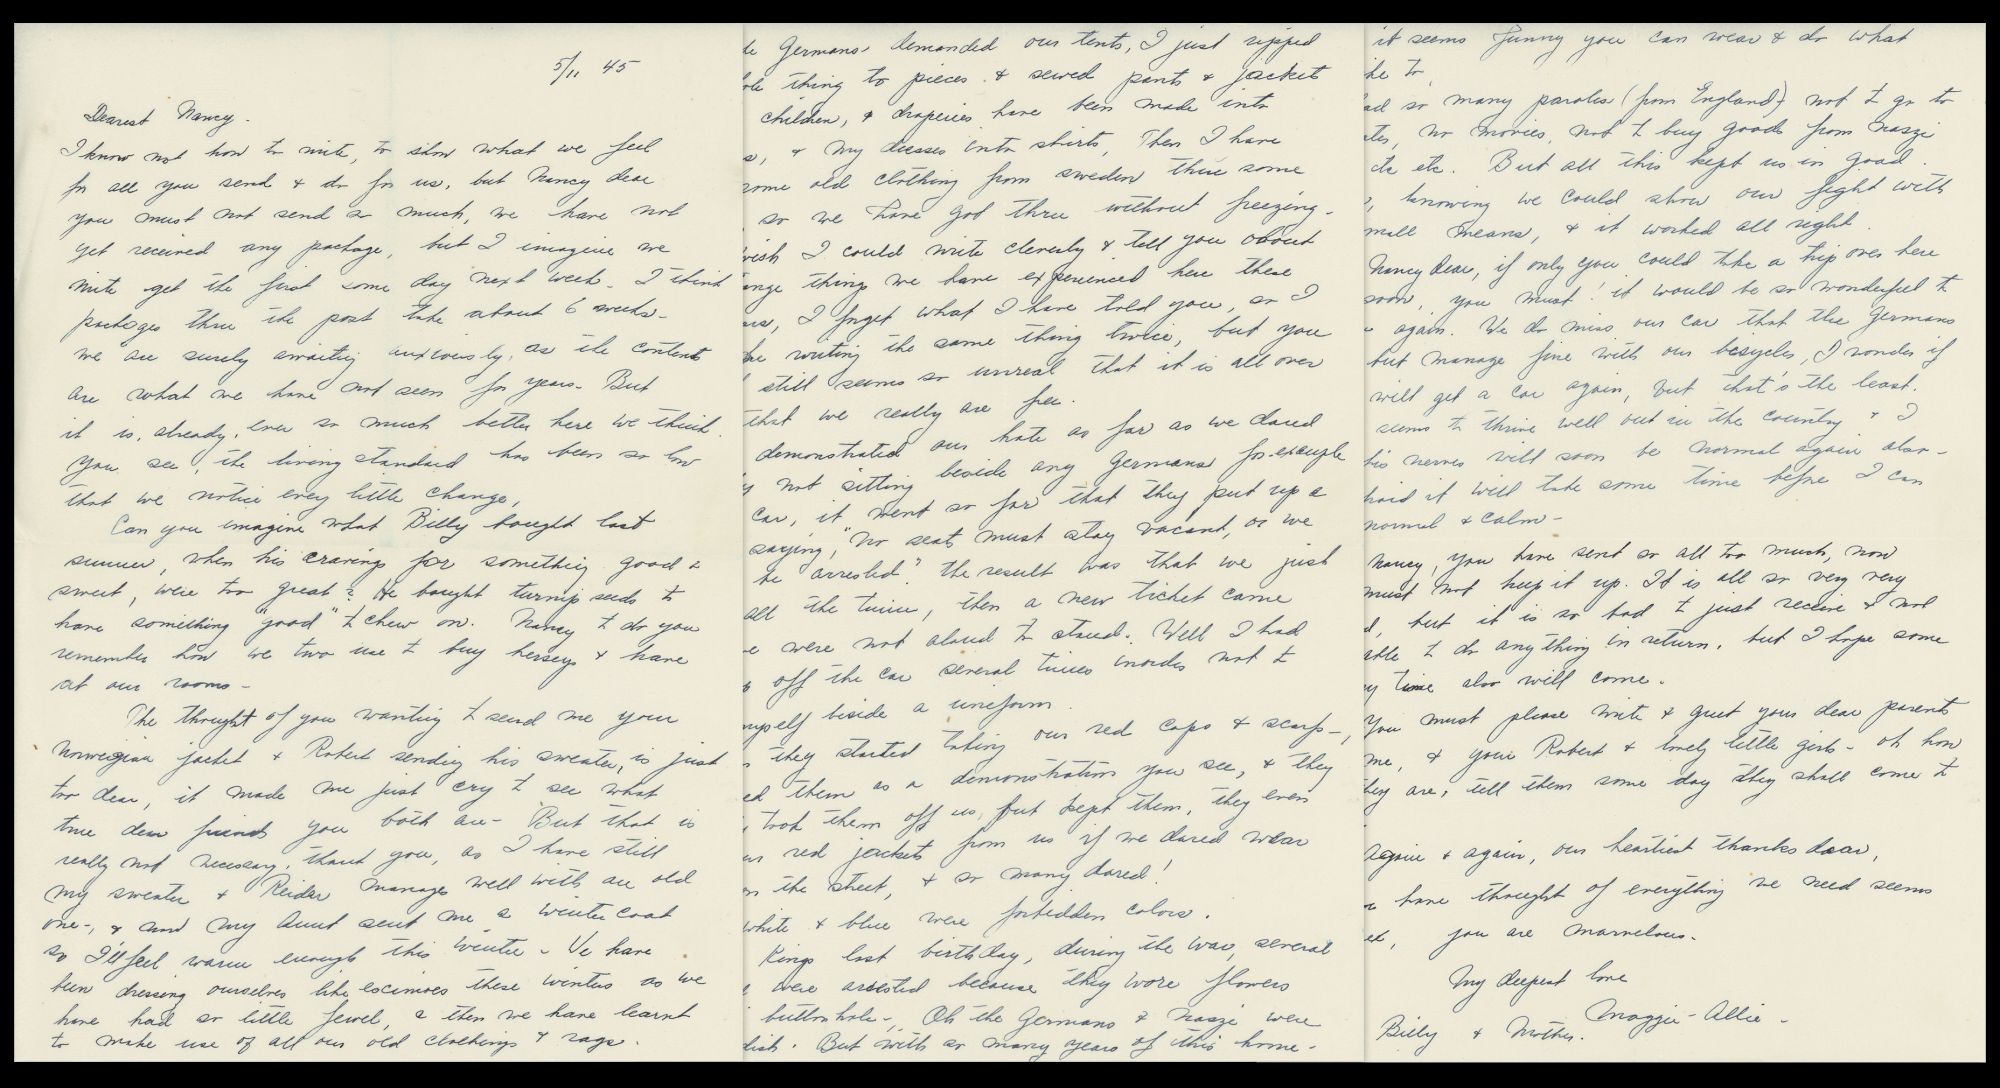 5/11 45
Dearest Nancy.
I know not how to write, to show what we feel
for all you send & do for us, but Nancy dear
you must not send so much, we have not
yet received any package, but I imagine we
mite get the first some day next week. I think
packages thru the post take about 6 weeks.
we are surely awaiting anxiously, as the contents
are what we have not seen for years. But
it is, already, ever so much better here we think.
You see, the living standard has been so low
that we notice every little change,
Can you imagine what Billy bought last
summer, when his cravings for something good &
sweet, were too great? He bought turnip seeds to
have something "good" to chew on. Nancy I do you
remember how we two use to buy herseys & have
at our rooms -
The thought of you wanting to send me your
Norwegian jacket & Robert sending his sweater, is just
too dear, it made me just cry to see what
true dear friends you both are - But that is
really not necessary, thank you, as I have still
my sweater & Reidar manages well with an old
one -, & and my Aunt sent me a winter coat
so I'll feel warm enough this winter - We have
been dressing ourselves like escimoes these winters as we
have had so little fewel, & then we have learnt
to make use of all our old clothings & rags.
Germans demanded our tents, I just ripped
thing to pieces & sewed pants & jackets
children, & draperies have been made into
& my dresses into shirts, Then I have
some old clothing from sweden thru some
so we have got thru without freezing.
I could write cleverly & tell you about
things we have experienced here these
I forget what I have told you, so I
writing the same thing twice, but you
still seems so unreal that it is all over
that we really are free.
demonstrated our hate as far as we dared
not sitting beside any Germans for example
car, it went so far that they put up a
saying, "no seats must stay vacant, or we
be arrested". The result was that we just
all the time, then a new ticket came
were not aloud to stand. Well I had
off the car several times inorder not to
myself beside a uniform.
they started taking our red caps & scarfs -,
them as a demonstration you see, & they
took them off us, but kept them, they even
red jackets from us if we dared wear
the street, & so many dared!
white & blue were forbidden colors.
Kings last birthday, during the war, several
were arrested because they wore flowers
buttonhole -, Oh the Germans & naszi were
But with so many years of this home -
it seems funny you can wear & do what
to.
so many paroles (from England) not to go to
no movies, not to buy goods from naszi
etc etc. But all this kept us in good
knowing we could show our fight with
small means, & it worked all right.
Nancy dear, if only you could take a trip over here
soon, you must! it would be so wonderful to
again. We do miss our car that the Germans
but manage fine with our bicycles, I wonder if
will get a car again, but that's the least.
seems to thrive well out in the country & I
his nerves will soon be normal again also -
it will take some time before I can
normal & calm -
Nancy, you have sent so all too much, now
must not keep it up. It is all so very very
but it is so bad to just receive & not
able to do anything in return, but I hope some
time also will come.
You must please write & greet your dear parents
me, & your Robert & lovely little girls - oh how
they are, tell them some day they shall come to
Again & again, our heartiest thanks dear,
have thought of everything we need seems
you are marvelous.
My deepest love
Maggie - Allie -
Billy & Mother.